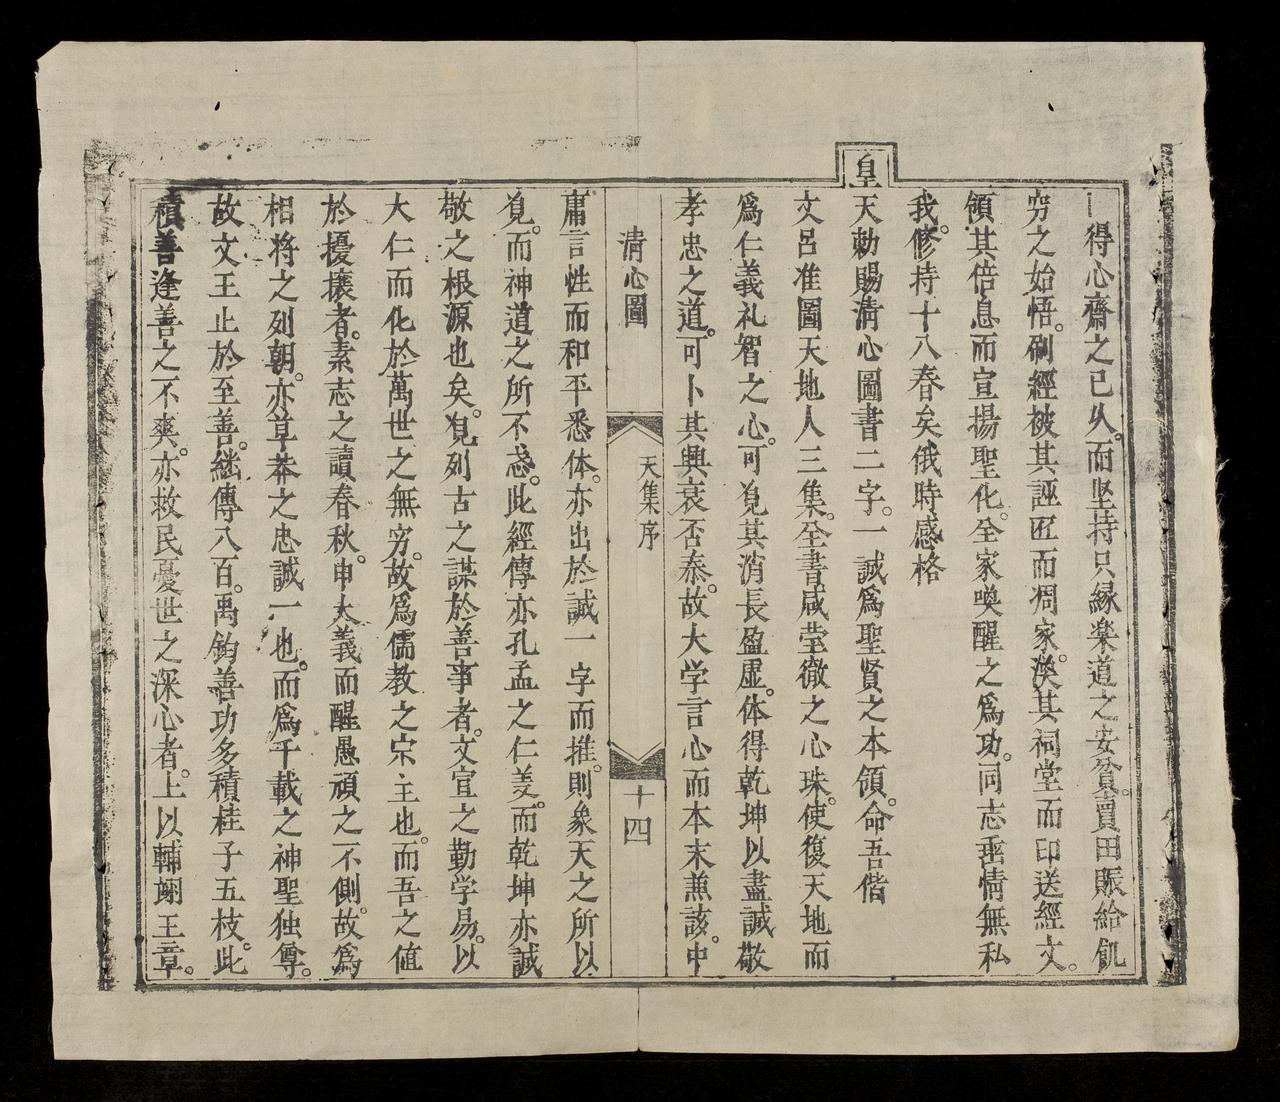 得心齋之已久。而坚持只縁楽道之安貧。賣田賑給飢
穷之始悟。刷經被其誣匝而凋家。渙其祠堂而印送經文。
領其倍息而宣揚聖化。全家喚醒之為功。同志垂情無私
我。修持十八春矣俄時感格
皇天勅賜清心圖書二字。一誠爲聖賢之本領。命吾偕
文吕准圖天地人三集。全書咸莹徹之心珠。使復天地而
爲仁義礼智之心。可覓其消長盈虚。体得乾坤以盡誠敬
孝忠之道。可卜其興衰否泰。故大学言心而本末兼該。中
清心圖
天集序
十四
庸言性而和平悉体。亦出於誠一字而推。則象天之所以
覓。而神道之所不忒。此經傳亦孔孟之仁羙。而乾坤亦誠
敬之根源也矣。覓列古之謀於善事者。文宣之勤学易。以
大仁而化於萬世之無穷。故爲儒教之宗主也。而吾之值
於擾攘者。素志之讀春秋。申大義而醒愚頑之不側。故爲
相将之列朝。亦草莽之忠誠一也。而爲千載之神聖独尊。
故文王止於至善。繼傳八百。禹鈞善功多積桂子五枝。此
積善逢善之不爽。亦救民憂世之深心者。上以輔翊王章。